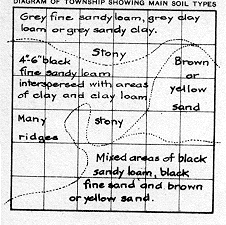 DIAGRAM OF TOWNSHIP SHOWING MAIN SOIL TYPES
Grey fine sandy loam, grey clay
loam or grey sandy clay.
Stony
4"-6" black
fine sandy loam
interspersed with areas
of clay and clay loam
Brown
or
yellow
sand
Many
ridges
stony
Mixed areas of black
sandy loam, black
fine sand and brown
or yellow sand.